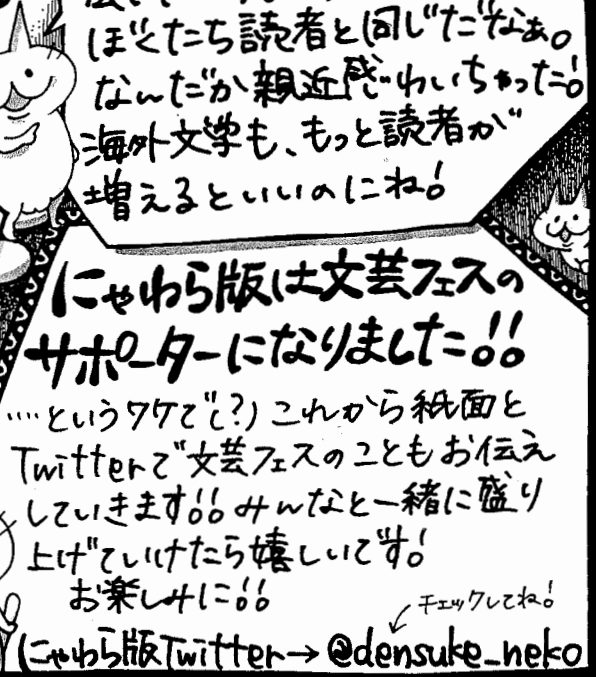 ぼくたち読者と同じだなぁ。
なんだか親近感わいちゃった!
海外文学も、もっと読者が
増えるといいのにね!
にゃわら版は文芸フェスの
サポーターになりました!!
‥‥というワケで(?)これから紙面と
Twitterで文芸フェスのこともお伝え
していきます!! みんなと一緒に盛り
上げていけたら嬉しいです!
お楽しみに!!
チェックしてね!
にゃわら版Twitter→ @densuke_neko